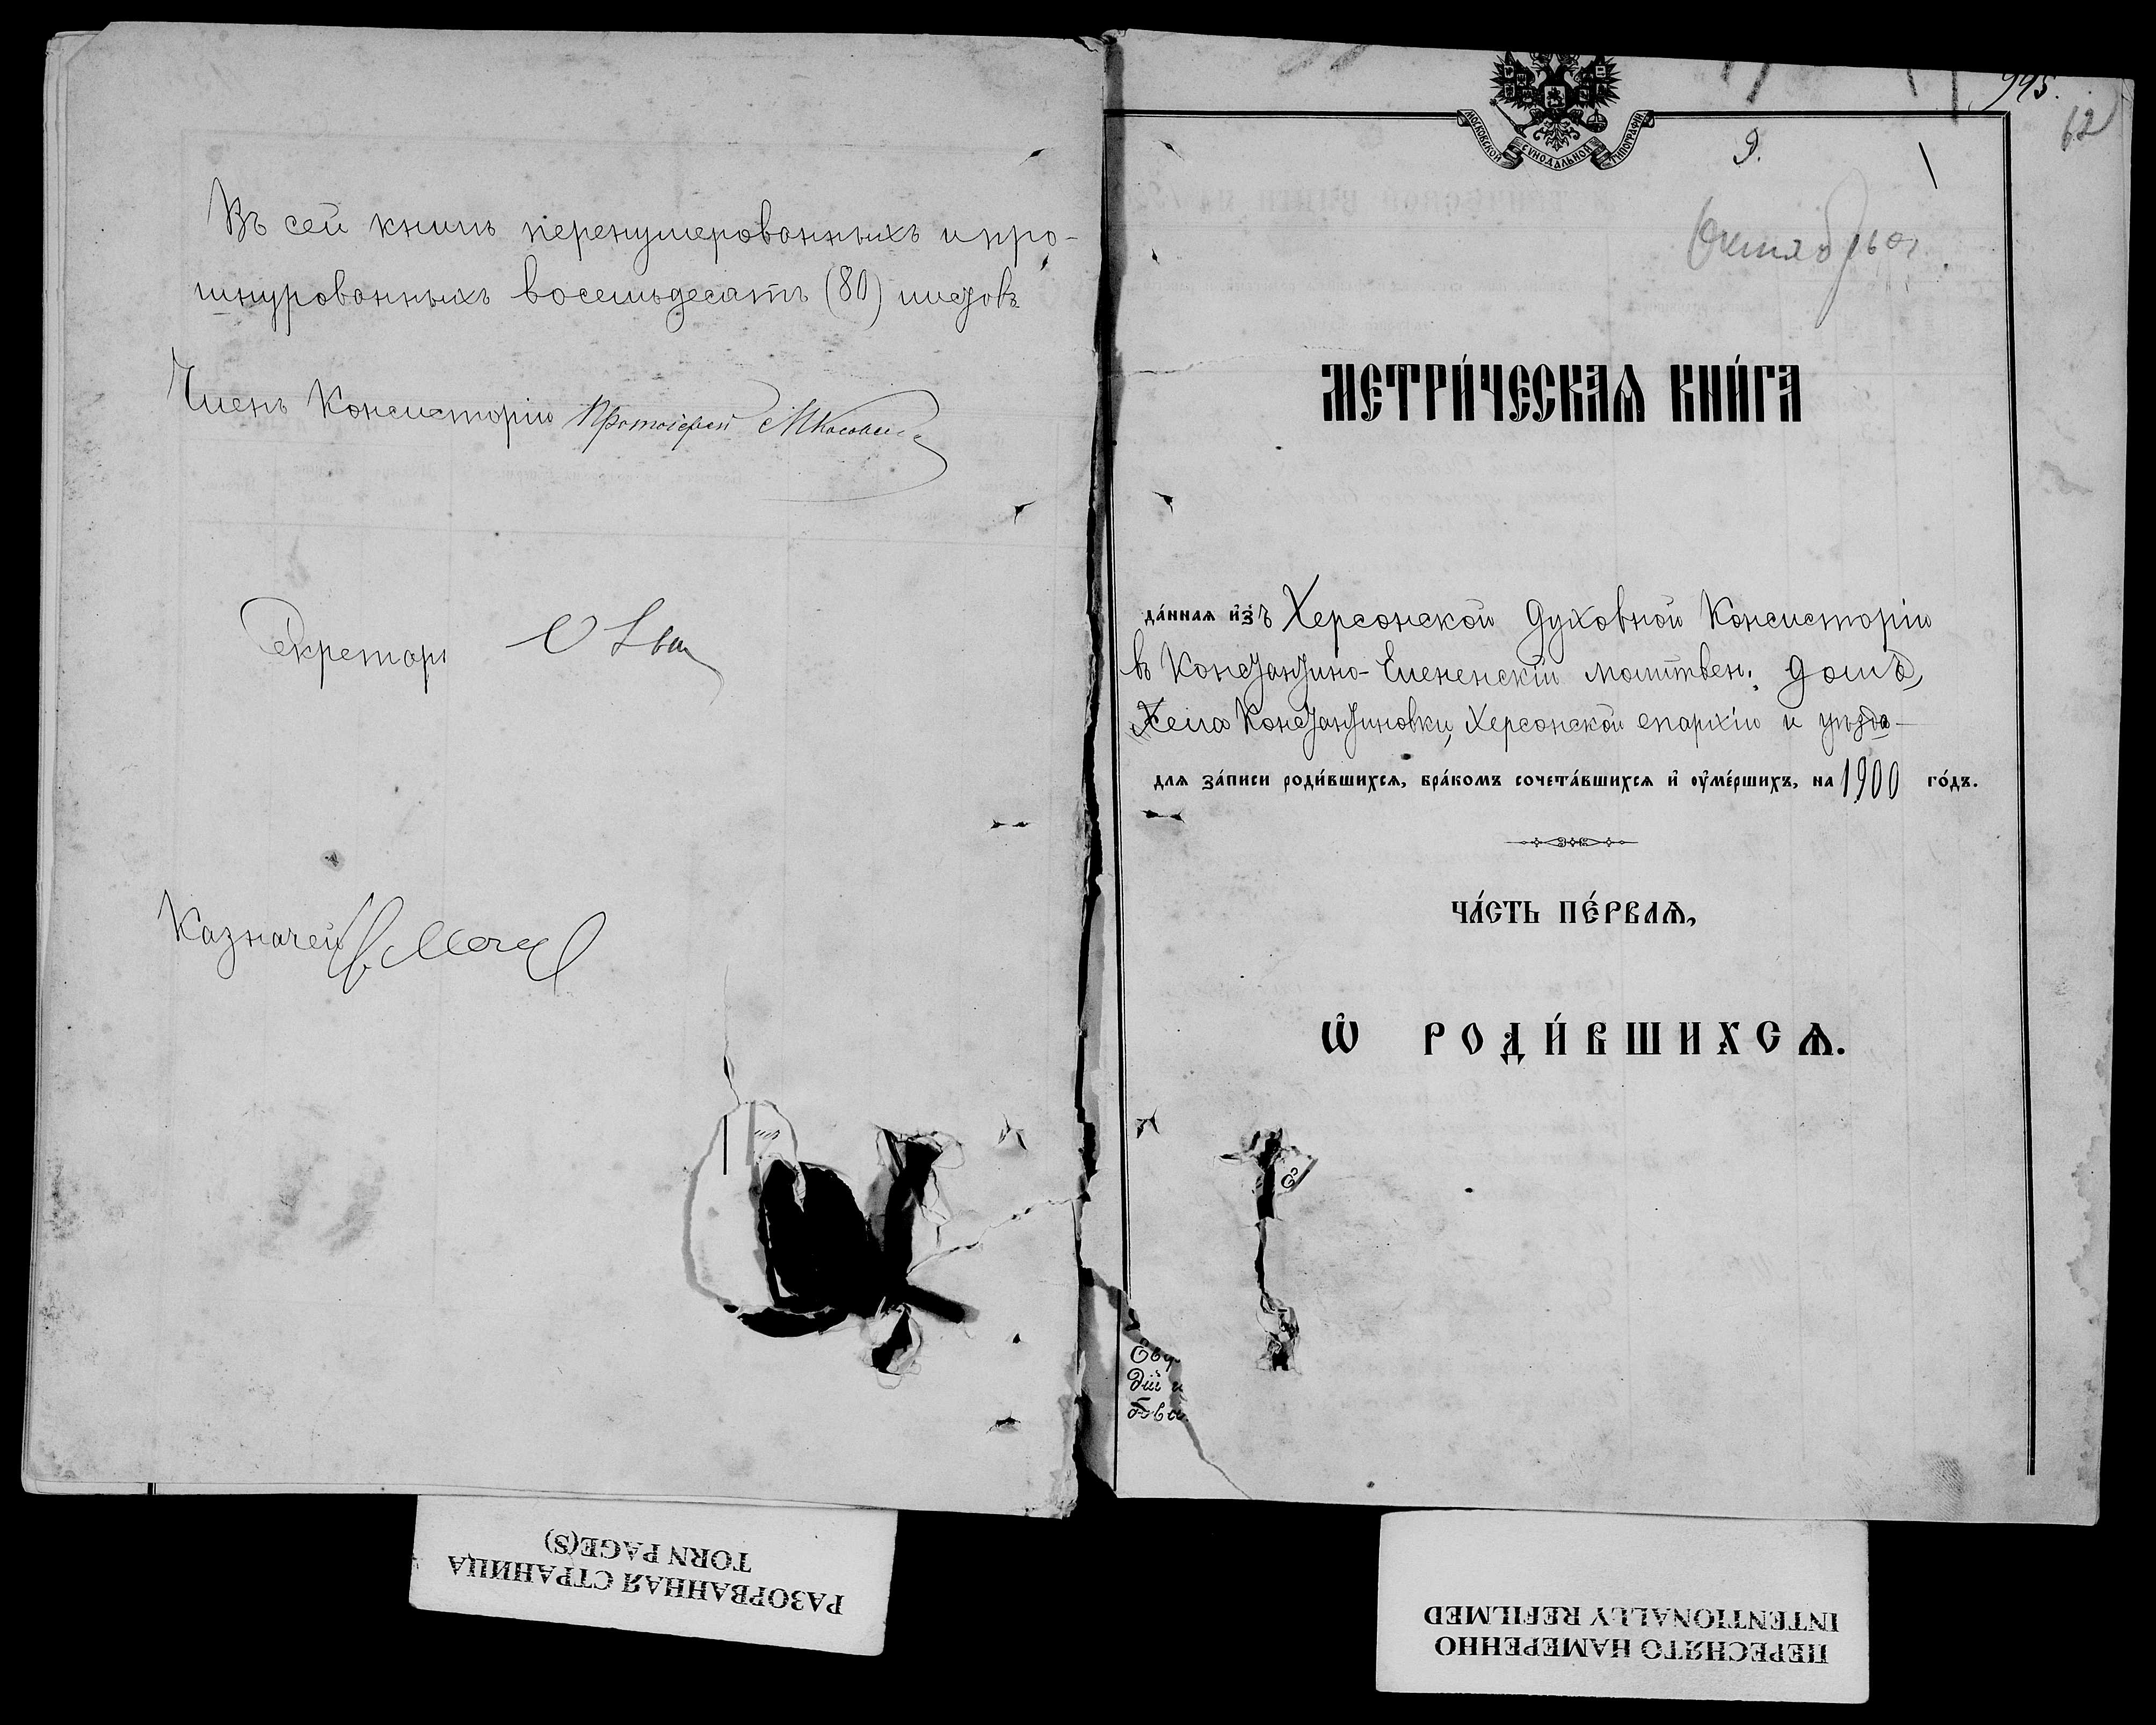 Въ сей книгѣ перенумерованныхъ и про-
шнурованныхъ восемьдесятъ (80) листовъ
Членъ Консисторіи Протоіерей
Секретарь
Казначей
МОСКОВСКОЙ СѴНОДАЛЬНОЙ ТИПОГРАФІИ
995.
62
9.
МЕТРИ́ЧЕСКАЯ КНИ́ГА
да́нная и҆зъ Херсонской Духовной Консисторіи
въ Константино-Еленинскій молитвен. домъ,
села Константиновки, Херсонской епархіи и уѣзда
для за́писи роди́вшихся, бра́комъ сочета́вшихся и҆ ѹ҆ме́ршихъ, на 1900 го́дъ.
ЧА́СТЬ ПЕ́РВАЯ,
Ѡ҆ РОДИ́ВШИХСЯ.
дій и
бва
РАЗОРВАННАЯ СТРАНИЦА
TORN PAGE(S)
ПЕРЕСНЯТО НАМЕРЕННО
INTENTIONALLY REFILMED